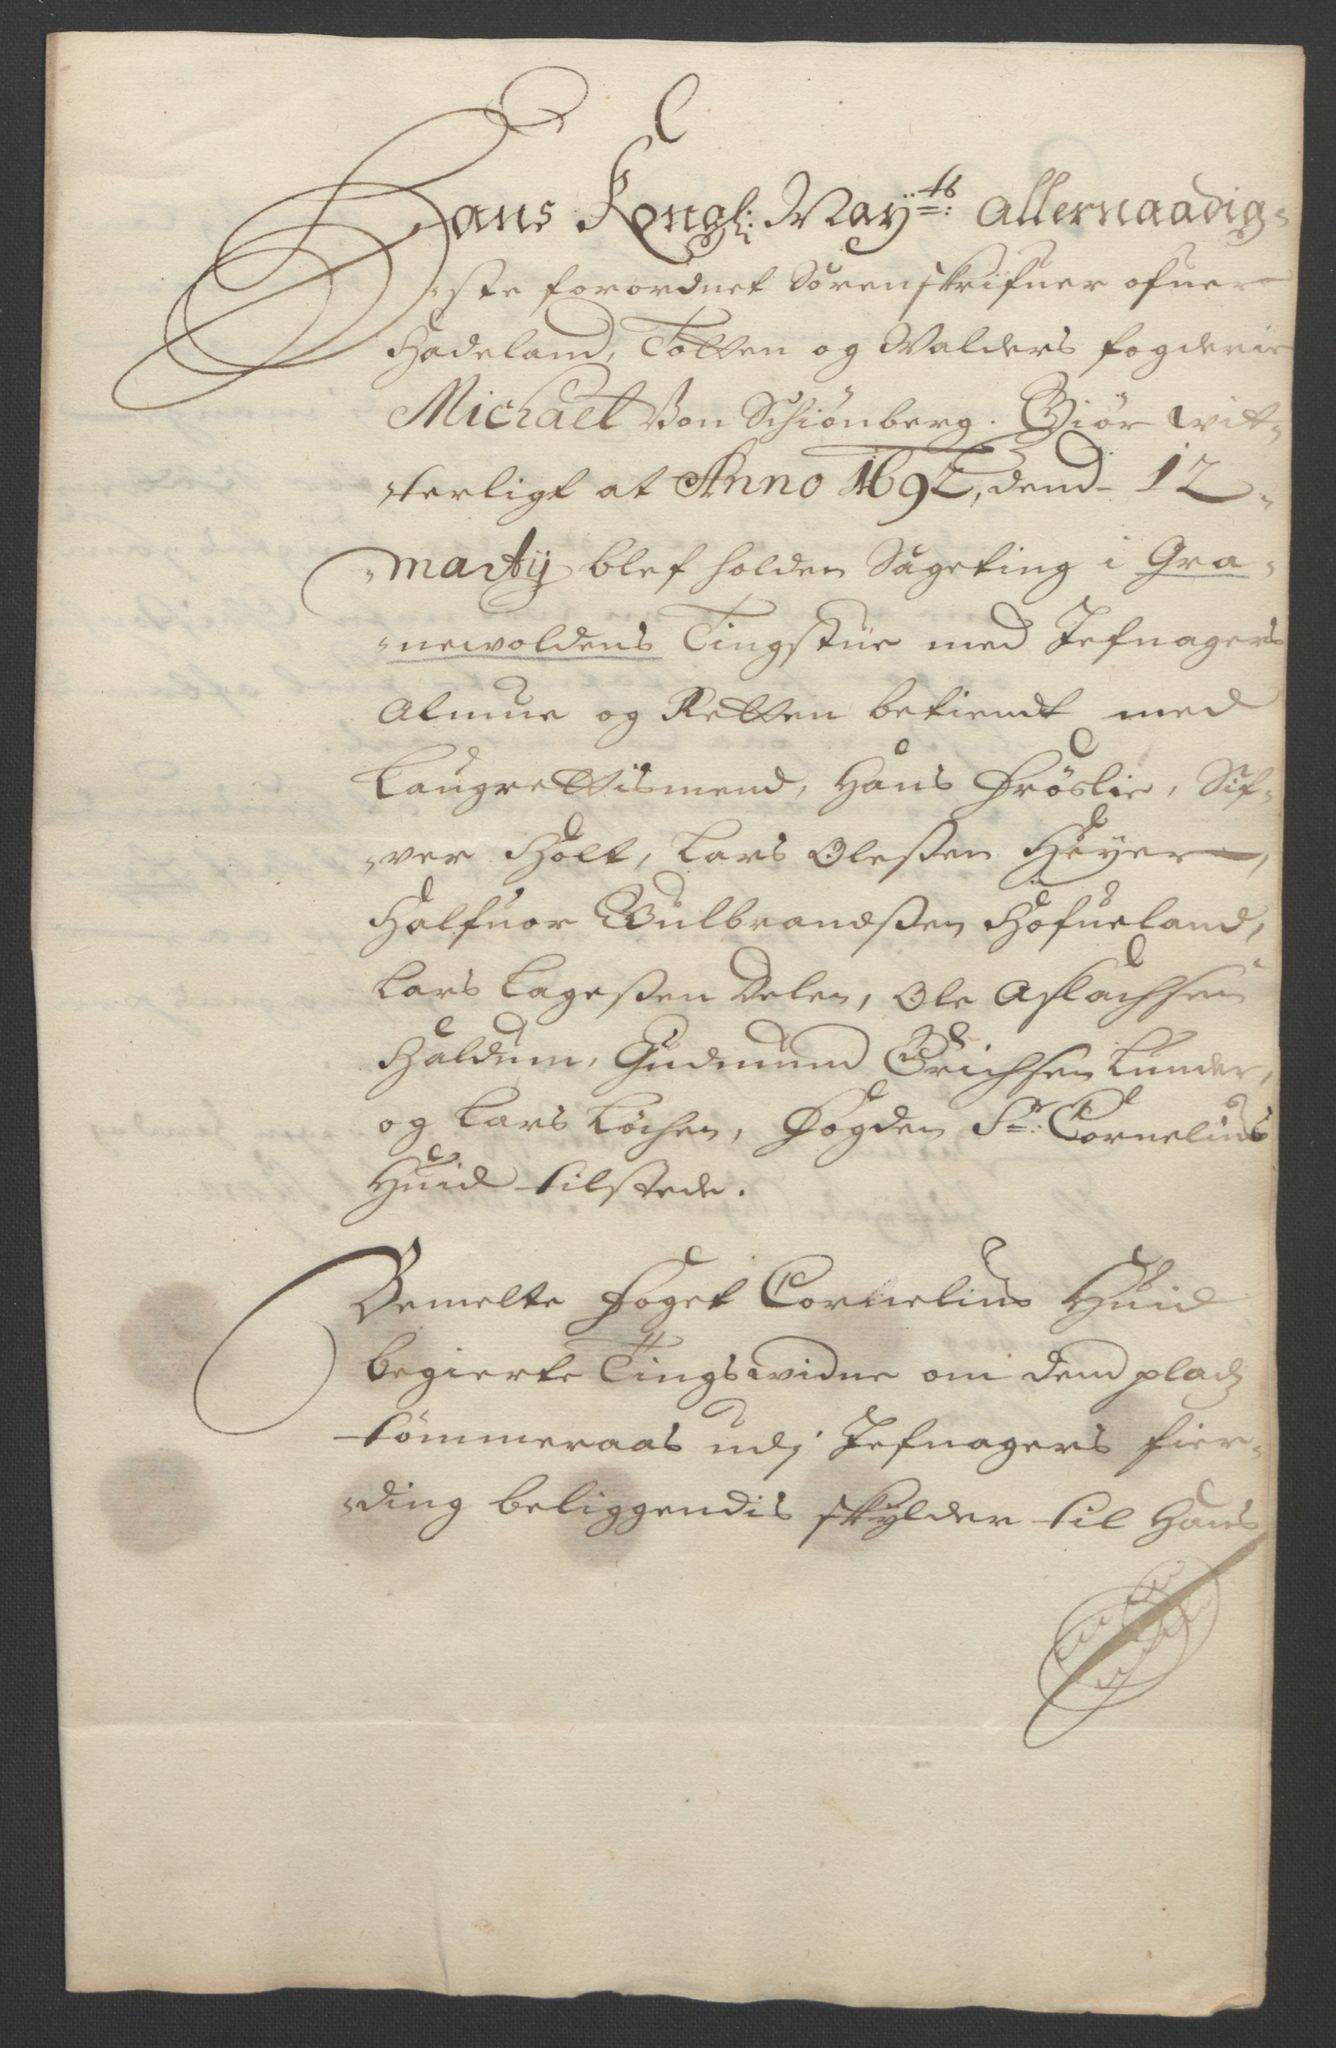 Hans Kongl: May:ts Allernaadig-
-ste forordnet Sorenskrifuer ofuer
Hadeland, Totten og Walders fogderie
Michael von Schiønberg. Giør wit-
-terligt at Anno 1692, dend 12
-martij blef holden Sageting i Gra-
-newoldens Tingstue med Jefnagers
Almue og Retten betiendt med
Laugrettismend, Hans Frøslie, Sif-
-ver Holt, Lars Oleßen Høyer,
Halfuor Gulbrandßen Hofueland,
Lars Lageßen Delen, Ole Aslachsen
Haldum, Gudmund Erichsen Lunder,
og Lars Løchen, Fogden Sr: Cornelius
Huid tilstede.
Bemelte Foget Cornelius Huid
begierte Tingswidne om dend pladz
Tømmeraas udj Jefnagers fier-
-ding beliggendis skylder til Hans